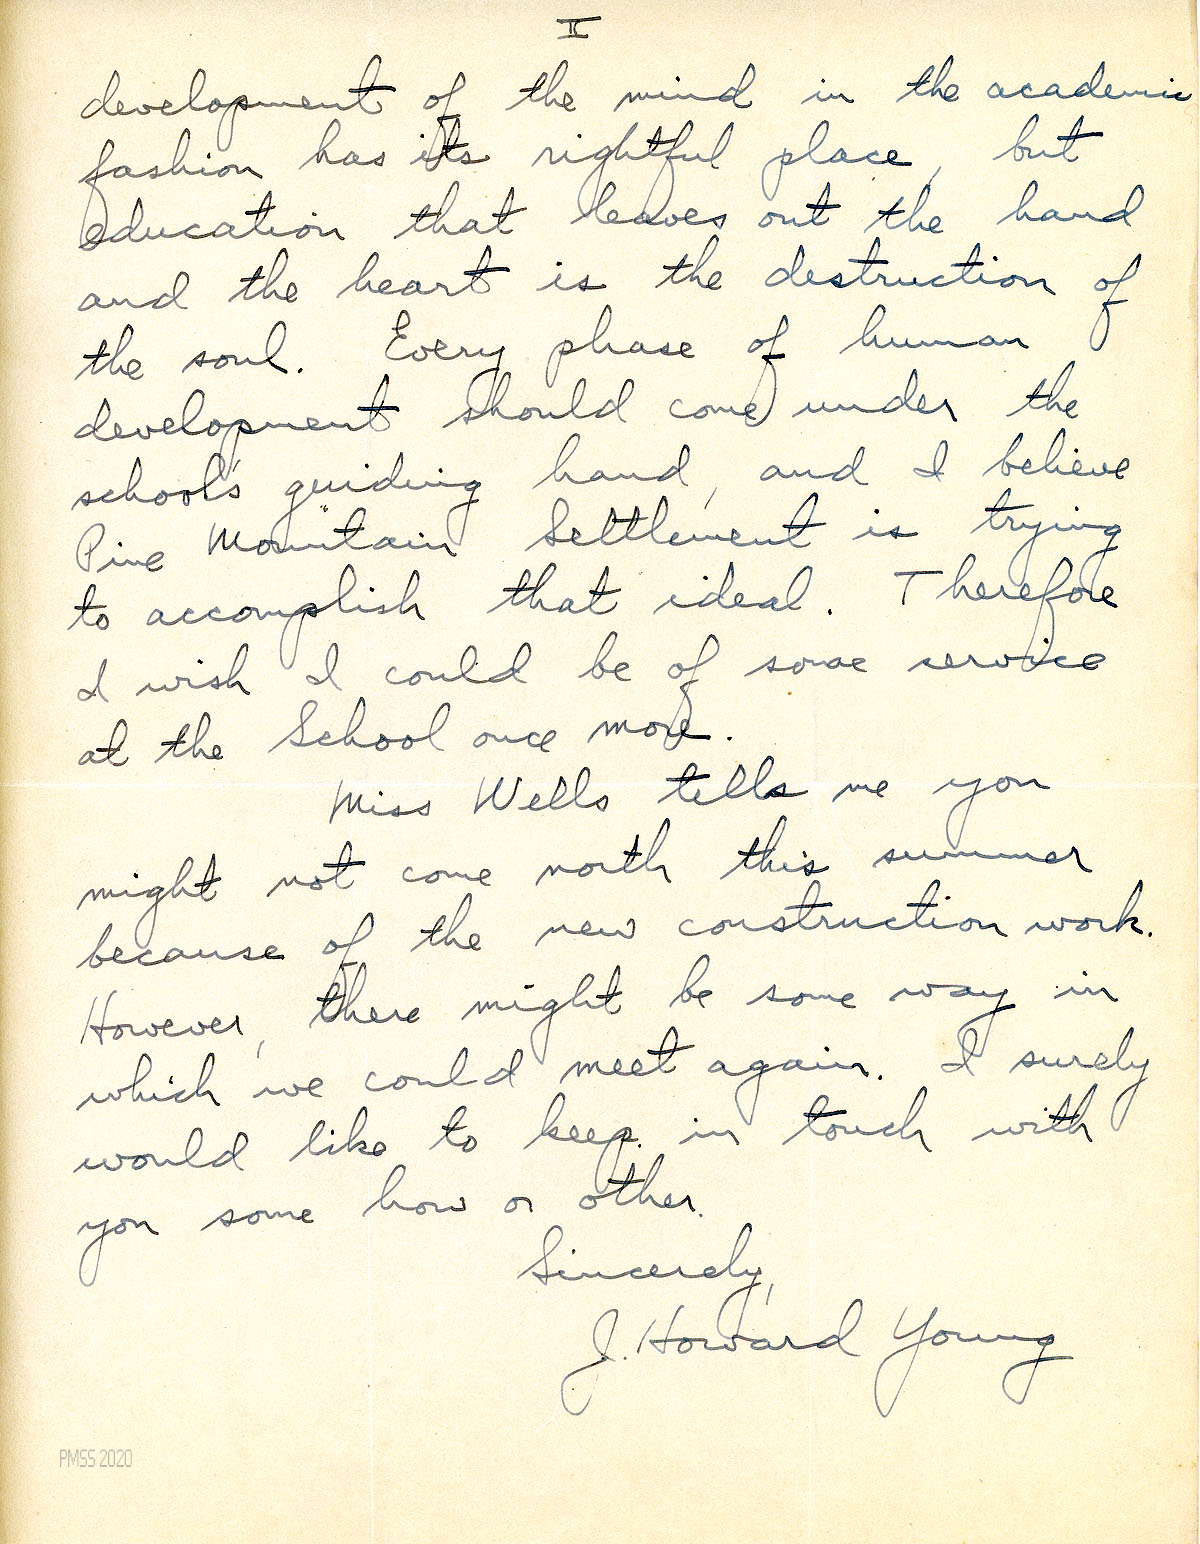 II
development of the mind in the academic
fashion has its rightful place, but
education that leaves out the hand
and the heart is the destruction of
the soul. Every phase of human
development should come under the
school's guiding hand, and I believe
Pine Mountain Settlement is trying
to accomplish that ideal. Therefore
I wish I could be of some service
at the School once more.
Miss Wells tells me you
might not come north this summer
because of the new construction work.
However, there might be some way in
which we could meet again. I surely
would like to keep in touch with
you some how or other.
Sincerely,
J. Howard Young
PMSS 2020